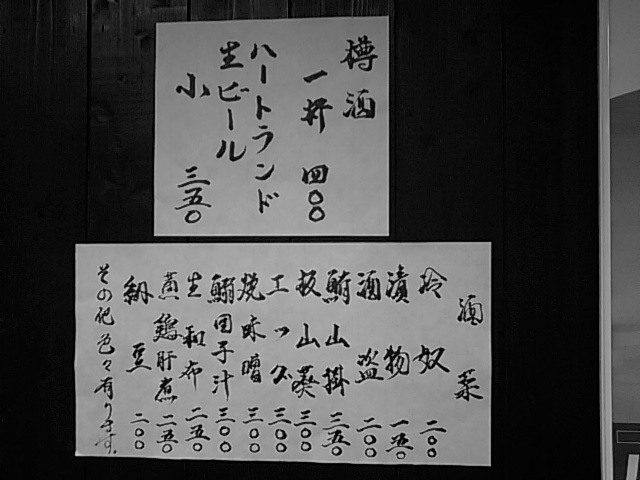 樽酒
一杯 四〇〇
ハートランド
生ビール
小 三五〇
酒菜
冷奴 二〇〇
漬物 一五〇
酒盗 二〇〇
鮪山掛 三五〇
板山葵 三〇〇
エッグ 三〇〇
焼味噌 三〇〇
鰯団子汁 三〇〇
生和布 二五〇
燕鶏肝煮 二五〇
納豆 二〇〇
その他色々有ります。